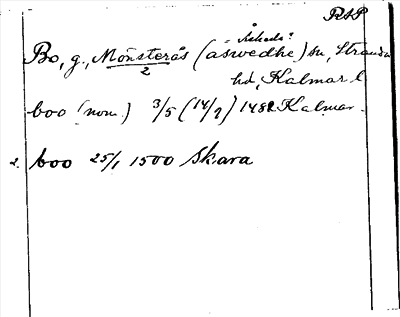 RAP
Åsheda?
Bo, g., Mönsterås (åswedhe) sn, Stranda
2
hd, Kalmar l
boo (nom.) 3/5 (14/7) 1482 Kalmar.
2. boo 25/1 1500 Skara